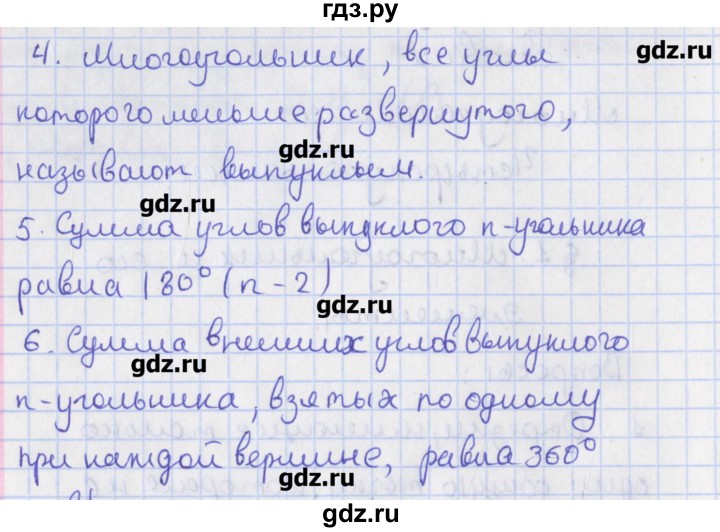 гдз.ру
4. Многоугольник, все углы
gdz.ru
которого меньше развернутого,
gdz.ru
называют выпуклым.
gdz.ru
5. Сумма углов выпуклого n-угольника
равна 180° (n-2)
gdz.ru
6. Сумма внешних углов выпуклого
gdz.ru
n-угольника, взятых по одному
gdz.ru
при каждой вершине, равна 360°
gdz.ru
gdz.ru